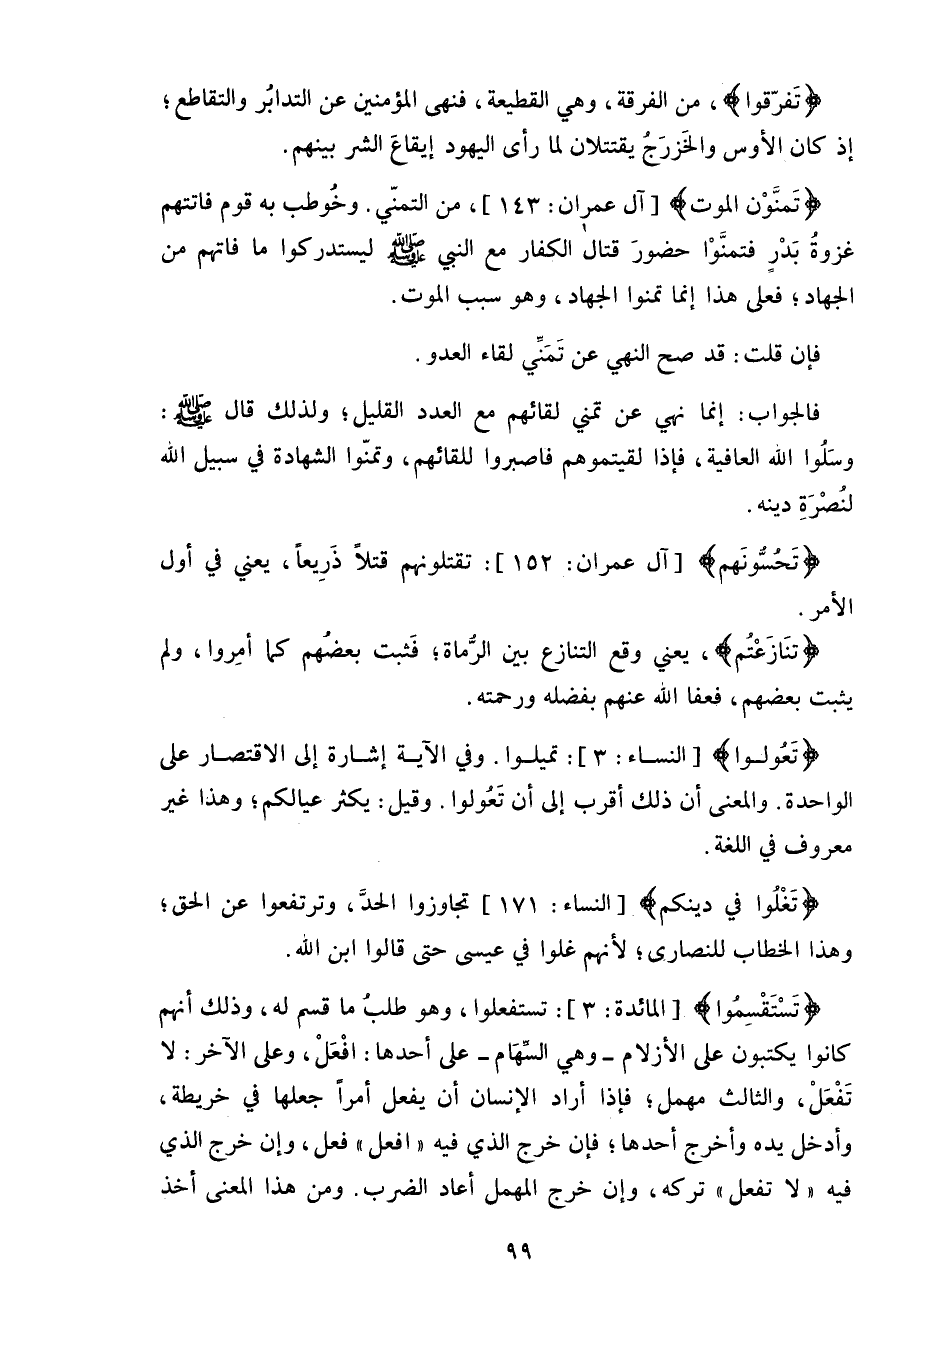 ﴿تَفرّقوا﴾، من الفرقة، وهي القطيعة، فنهى المؤمنين عن التدابُر والتقاطع؛
إذ كان الأوس والخَزرَجُ يقتتلان لما رأى اليهود إيقاعَ الشر بينهم.
﴿تَمنَّوْن الموت﴾ [آل عمران: ١٤٣]، من التمنّي. وخُوطب به قوم فاتتهم
غزوةُ بَدْرٍ فتمنَّوْا حضورَ قتال الكفار مع النبي ﷺ ليستدركوا ما فاتهم من
الجهاد؛ فعلى هذا إنما تمنوا الجهاد، وهو سبب الموت.
فإن قلت: قد صح النهي عن تَمَنِّي لقاء العدو.
فالجواب: إنما نهي عن تمني لقائهم مع العدد القليل؛ ولذلك قال ﷺ:
وسَلُوا الله العافية، فإذا لقيتموهم فاصبروا للقائهم، وتمنّوا الشهادة في سبيل الله
لنُصْرَةِ دينه.
﴿تَحُسُّونَهم﴾ [آل عمران: ١٥٢]: تقتلونهم قتلاً ذَرِيعاً، يعني في أول
الأمر.
﴿تنَازَعْتُم﴾، يعني وقع التنازع بين الرُّماة؛ فَثبت بعضُهم كما أمِروا، ولم
يثبت بعضهم، فعفا الله عنهم بفضله ورحمته.
﴿تَعُولـوا﴾ [النسـاء: ٣]: تميلـوا. وفي الآيـة إشـارة إلى الاقتصـار على
الواحدة. والمعنى أن ذلك أقرب إلى أن تَعُولوا. وقيل: يكثر عيالكم؛ وهذا غير
معروف في اللغة.
﴿تَغْلُوا في دينكم﴾ [النساء: ١٧١] تجاوزوا الحدَّ، وترتفعوا عن الحق؛
وهذا الخطاب للنصارى؛ لأنهم غلوا في عيسى حتى قالوا ابن الله.
﴿تَسْتَقْسِمُوا﴾ [المائدة: ٣]: تستفعلوا، وهو طلبُ ما قسم له، وذلك أنهم
كانوا يكتبون على الأزلام ـ وهي السِّهَام ـ على أحدها: افْعَلْ، وعلى الآخر: لا
تَفْعَلْ، والثالث مهمل؛ فإذا أراد الإنسان أن يفعل أمراً جعلها في خريطة،
وأدخل يده وأخرج أحدها؛ فإن خرج الذي فيه «افعل» فعل، وإن خرج الذي
فيه «لا تفعل» تركه، وإن خرج المهمل أعاد الضرب. ومن هذا المعنى أخذ
٩٩